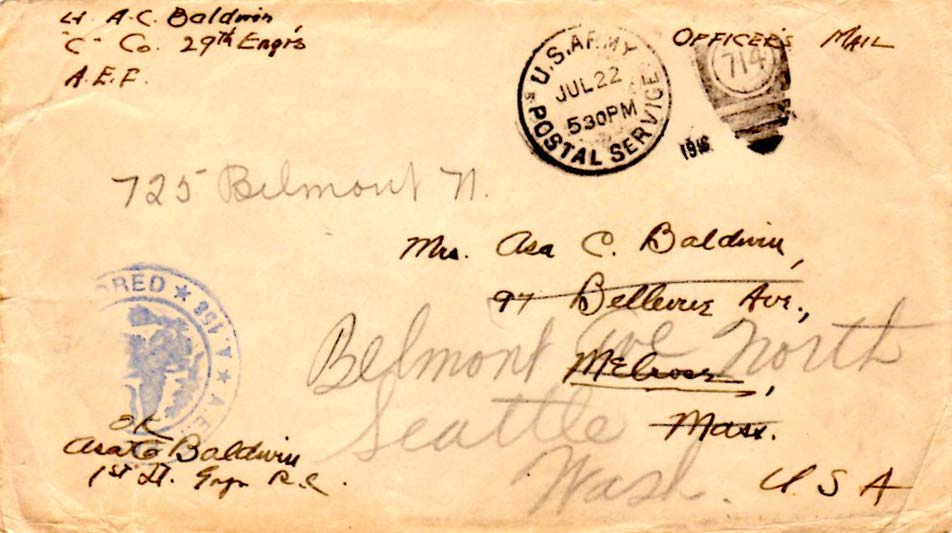 Lt A.C. Baldwin,
"C" Co. 29th Engrs
A.E.F.
OFFICER'S MAIL
U.S. ARMY
JUL 22
530PM
POSTAL SERVICE
714
725 Belmont N.
Mrs. Asa C. Baldwin,
97 Bellevue Ave.,
Melrose,
Mass.
U S A
Belmont Ave North
Seattle
Wash.
ORED ★ 158 ★ A.E.
OK
Asa C Baldwin
1st Lt. Engr R.C.